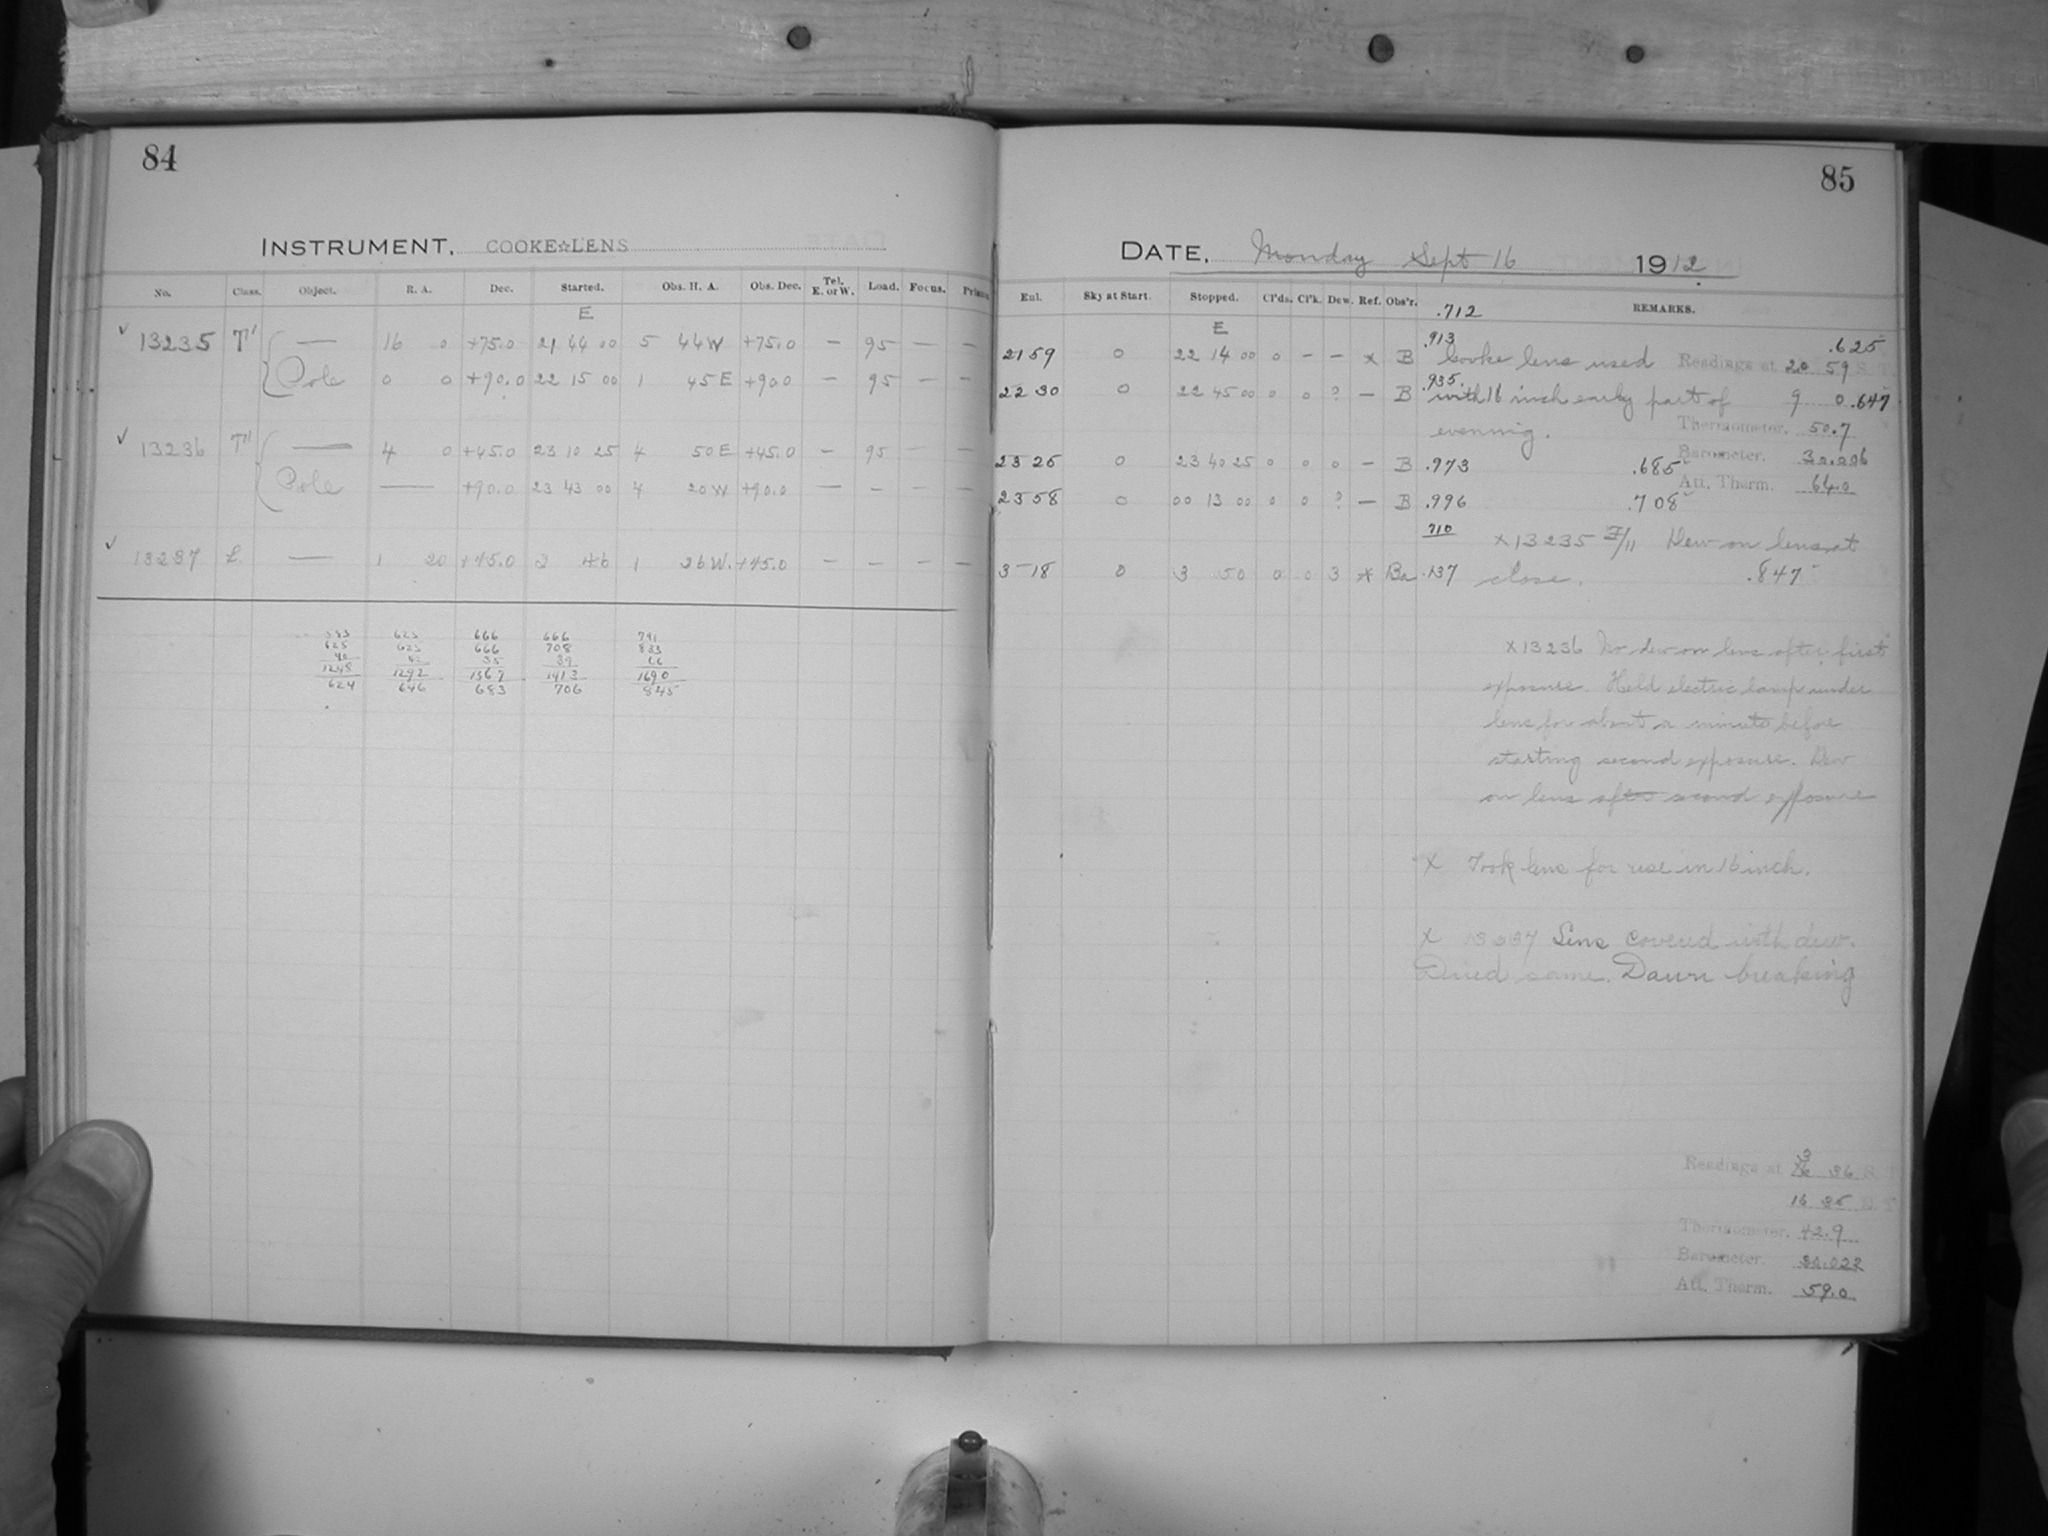 84
INSTRUMENT, COOKE☆LENS
No. Class. Object. R. A. Dec. Started. Obs. H. A. Obs. Dec. Tel. E. or W. Load. Focus. Prisms
E
✓ 13235 T' — 16 0 +75.0 21 44 00 5 44 W +75.0 — 95 — —
Pole 0 0 +90.0 22 15 00 1 45 E +90.0 — 95 — —
✓ 13236 T" — 4 0 +45.0 23 10 25 4 50 E +45.0 — 95 — —
Pole — +90.0 23 43 00 4 20 W +90.0 — — — —
✓ 13237 L — 1 20 +45.0 2 46 1 26 W. +45.0 — — — —
583 625 666 666 791
625 625 666 708 833
40 42 35 39 66
1248 1292 1367 1413 1690
624 646 683 706 845
85
DATE, Monday Sept 16 1912
Eul. Sky at Start. Stopped. Cl'ds. Cl'k. Dew. Ref. Obs'r. REMARKS.
.712
E
.913 .625
21 59 0 22 14 00 0 — — x B Cooke lens used Readings at 20 59 S. T.
.935
22 30 0 22 45 00 0 0 ? — B with 16 inch early part of 9 0 .647
evening. Thermometer. 50.7
Barometer. 30.206
23 25 0 23 40 25 0 0 0 — B .973 .685
Att. Therm. 64.0
23 58 0 00 13 00 0 0 ? — B .996 .708
710
x 13235 F/11 Dew on lens at
3 18 0 3 50 0 0 3 x Ba .137 close. .847
x 13236 No dew on lens after first
exposure. Held electric lamp under
lens for about a minute before
starting second exposure. Dew
on lens after second exposure
x Took lens for use in 16 inch.
x 13237 Lens covered with dew.
Dried same. Dawn breaking
Readings at 3 36 S. T.
16 35
Thermometer. 42.9
Barometer. 30.022
Att. Therm. 59.0